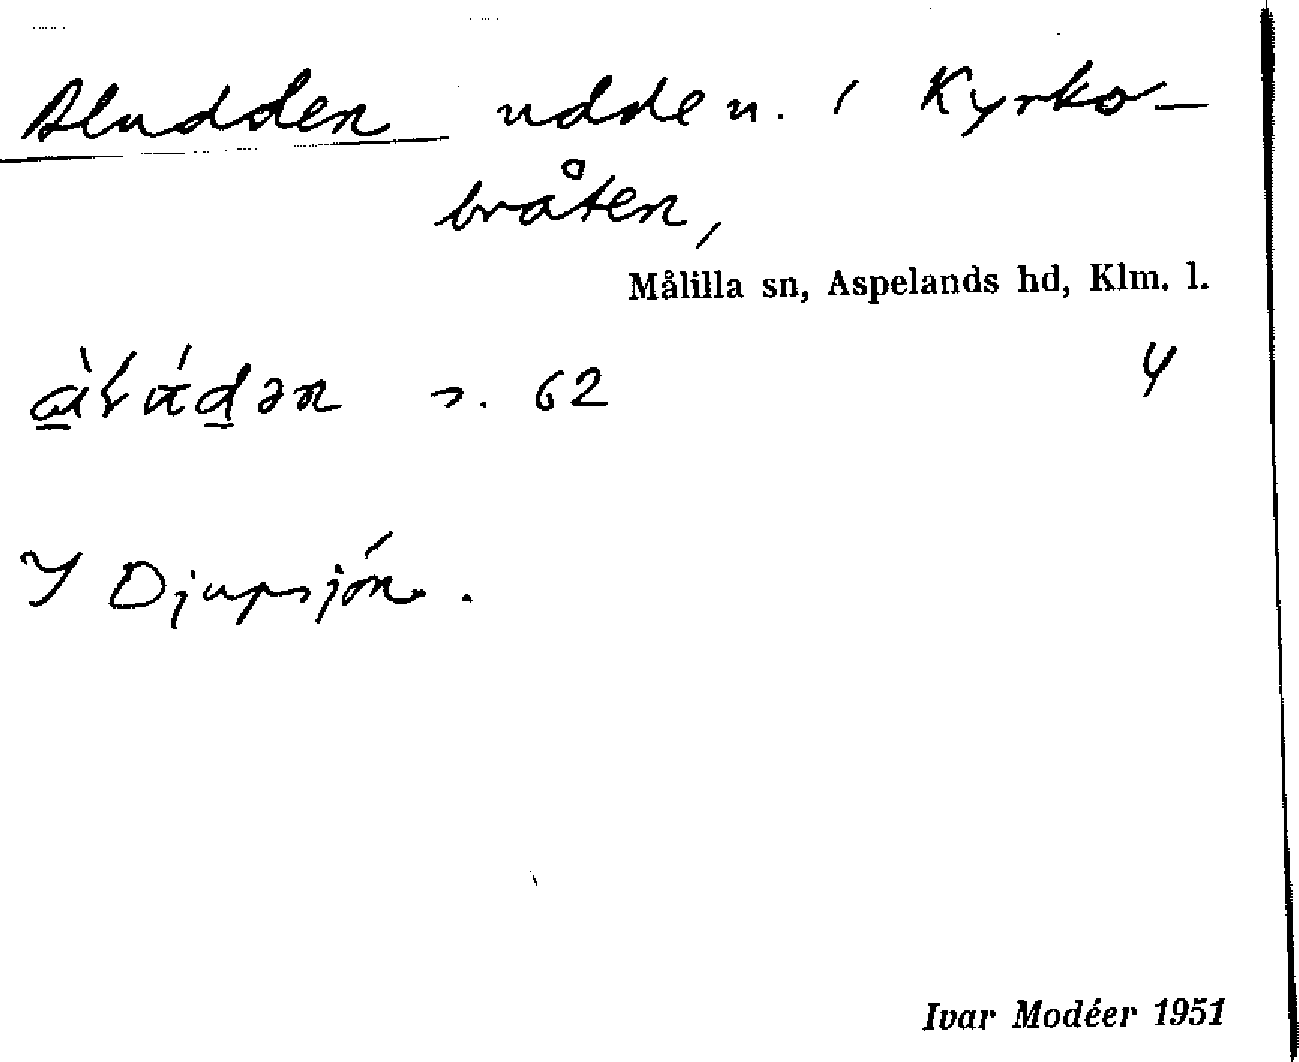 Aludden udden. i Kyrko-
bråten,
Målilla sn, Aspelands hd, Klm. l.
s. 62 4
I Djupsjön.
Ivar Modéer 1951